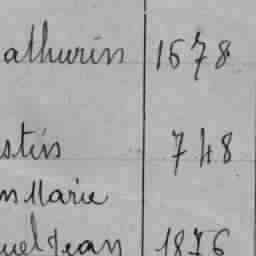 athurin 1678
stin 748
n Marie
uel Jean 1876